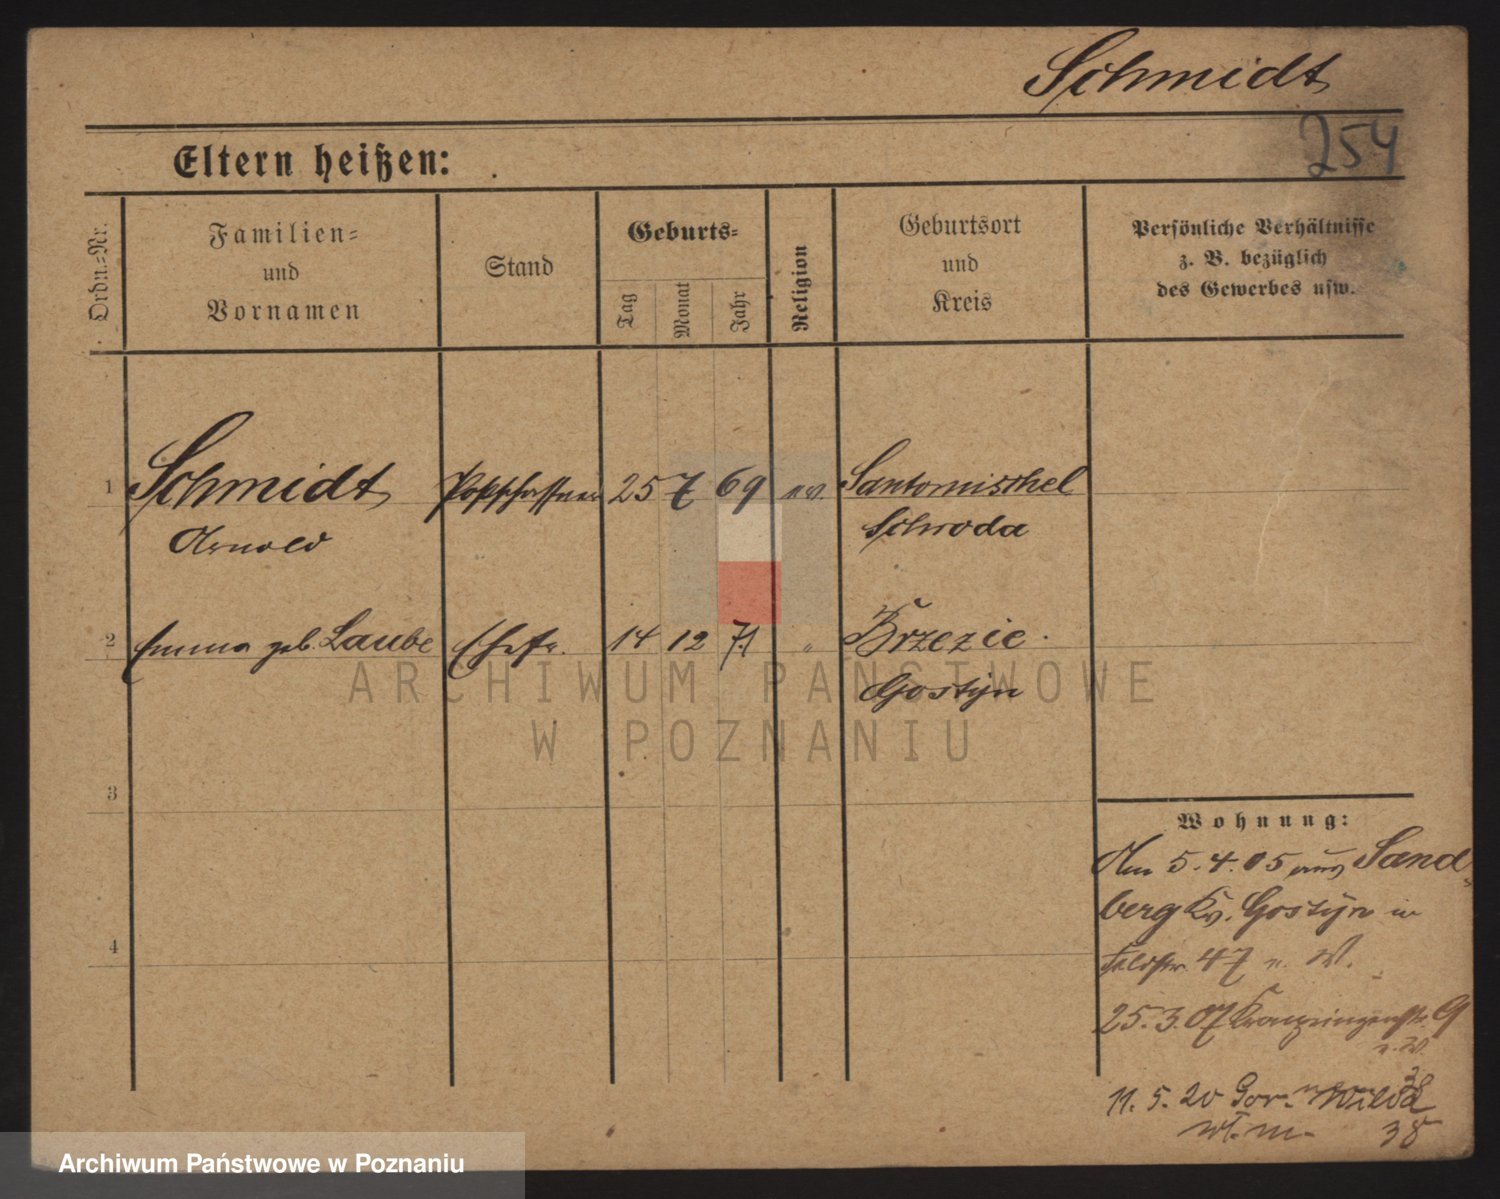 Schmidt
254
Eltern heißen:
Ordn.-Nr.
Familien-
und
Vornamen
Stand
Geburts-
Tag
Monat
Jahr
Religion
Geburtsort
und
Kreis
Persönliche Verhältnisse
z. B. bezüglich
des Gewerbes usw.
1 Schmidt Postschaffner 25 7 69 ev. Santomischel
Arnold Schroda
2 Emma geb. Laube Ehefr. 14 12 71 " Brzezie.
Gostyn
ARCHIWUM PAŃSTWOWE
W POZNANIU
3
4
Wohnung:
Am 5.4.05 aus Sand-
berg Kr. Gostyn in
Feldstr. 47 n. W.
25.3.07 Kronprinzenstr. 9
n. W.
11.5.20 Gór. Wilda
38
Archiwum Państwowe w Poznaniu